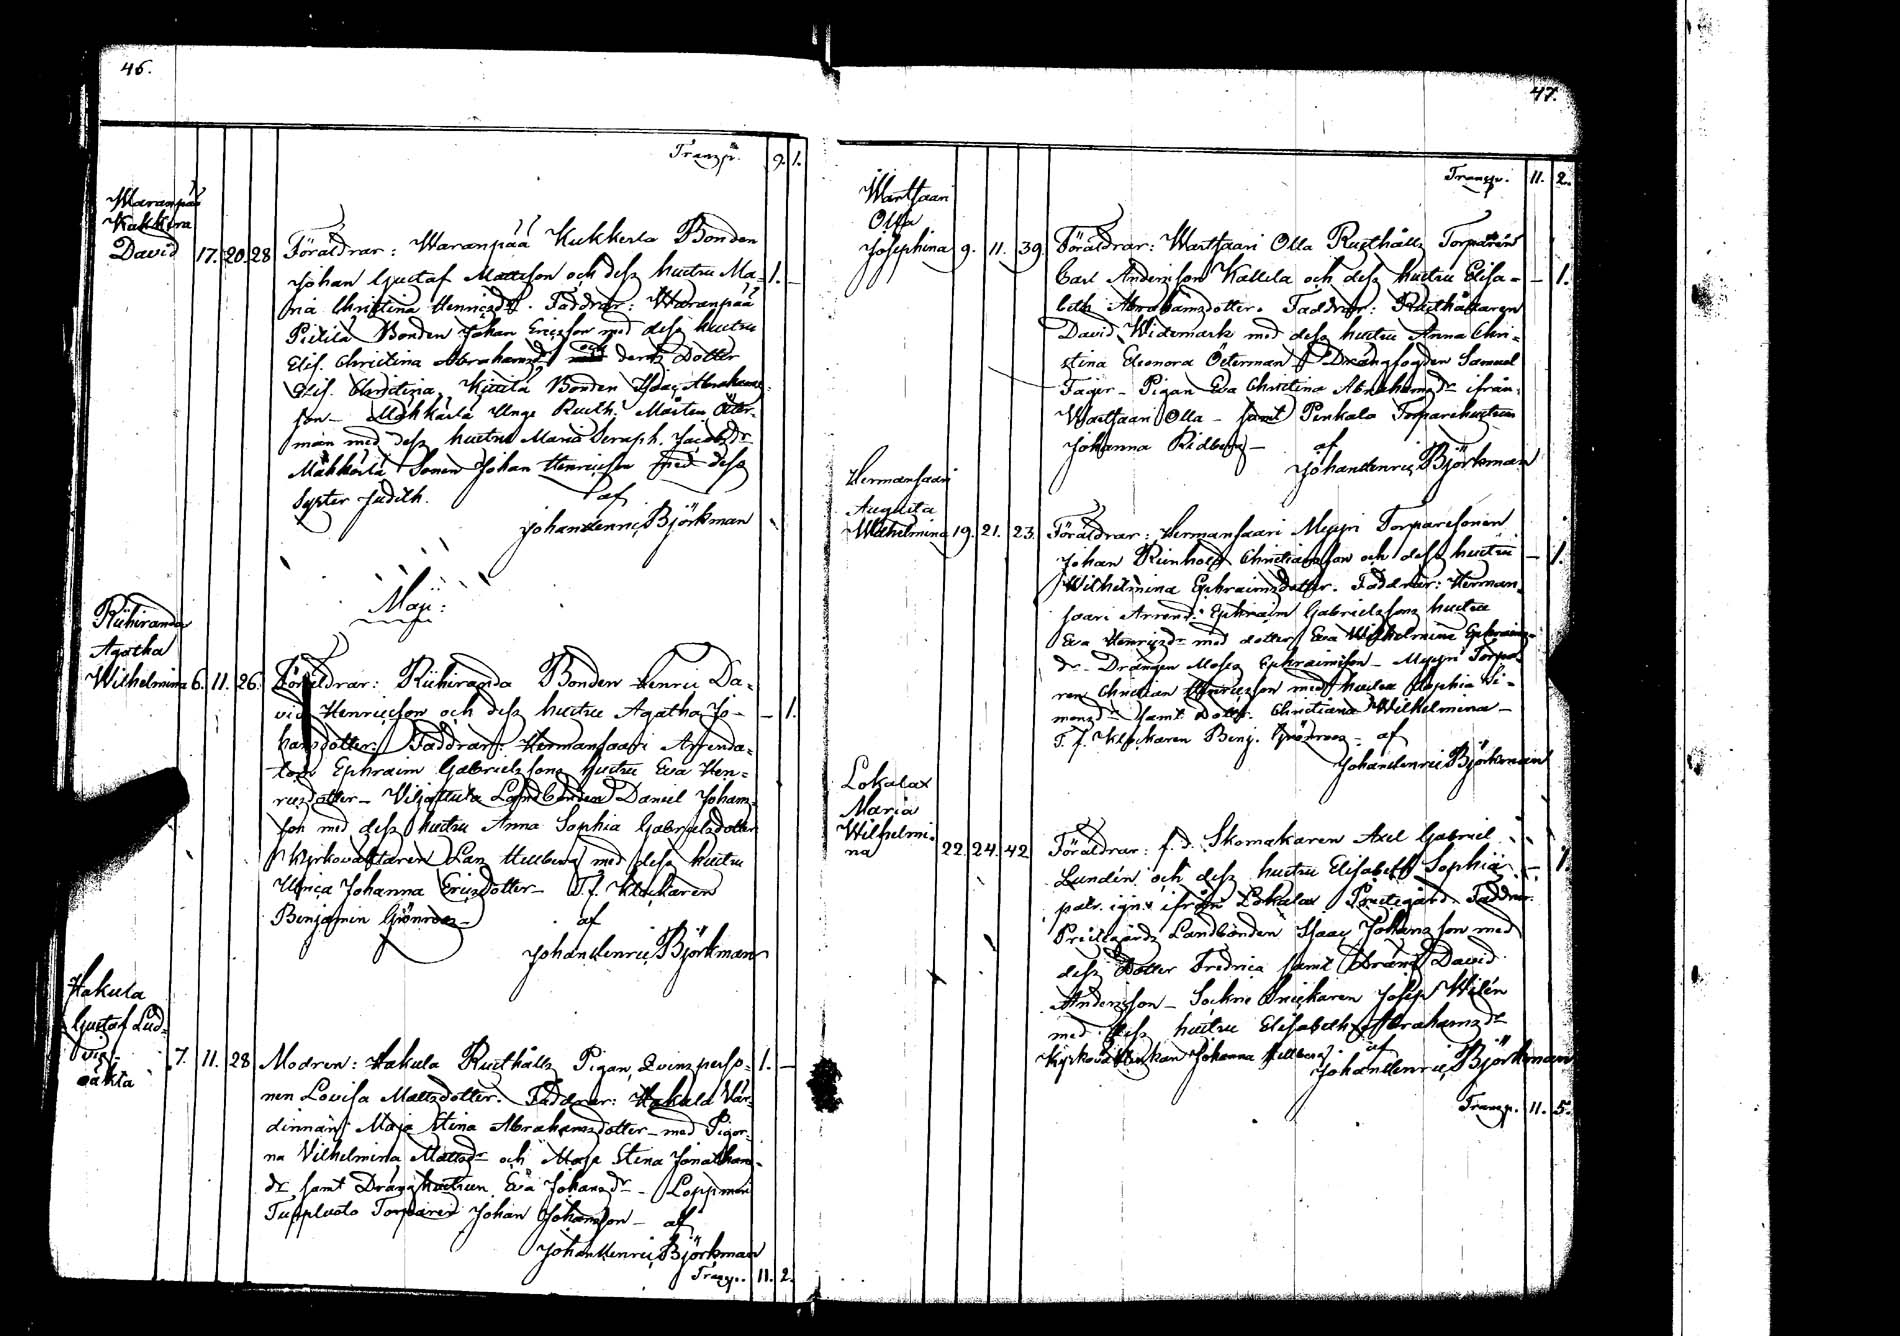 46.
Transp. 9. 1.
Waranpää
Kukkera
David 17. 20. 28 Föräldrar: Waranpää Kukkerla Bonden
Johan Gustaf Mattsson och dess hustru Ma- 1. –
ria Christina Henricsdr. Faddrar: Waranpää
Pietilä Bonden Johan Ericsson med dess hustru
Elis. Christina Abrahamsdr och deras Dotter
Elis. Christina, Bonden Isaac Abrahams-
son – Mähkärlä Unge Rusth. Mårten Öster-
man med dess hustru Maria Seraph. Jacobsdr
Mähkärlä Sonen Johan Henricsson med dess
Syster Judith. af
Johan Henric Björkman
Maji:
Riihiranda
Agatha
Wilhelmina 6. 11. 26. Föräldrar: Riihiranda Bonden Henric Da-
vid Henricsson och dess hustru Agatha Jo- – 1.
hansdotter. Faddrar: Hermansaari Arrenda-
torn Ephraim Gabrielssons hustru Eva Hen-
ricsdotter – Viljattula Landbonden Daniel Johans-
son med dess hustru Anna Sophia Gabrielsdotter
Kyrkovaktaren Hellberg med dess hustru
Ulrica Johanna Ericsdotter – T.f. Klockaren
Benjamin Grönroos – af
Johan Henric Björkman
Hakula
Gustaf Lud-
vig –
oäkta 7. 11. 28 Modren: Hakula Rusthålls Pigan, Qvinsperso- 1. –
nen Lovisa Mattsdotter. Faddrar: Hakula Vär-
dinnan Maja Stina Abrahamsdotter – med Pigor-
na Vilhelmina Mattsdr och Maja Stina Jonathans-
dr samt Dränghustrun Eva Johansdr – Loppmeri
Tuppluoto Torparen Johan Johansson – af
Johan Henric Björkman
Transp. 11. 2.
47.
Transp. 11. 2.
Wartsaari
Olla
Josephina 9. 11. 39. Föräldrar: Wartsaari Olla Rusthålls Torparen
Carl Andersson Kallela och dess hustru Elisa- – 1.
beth Abrahamsdotter. Faddrar: Rusthållaren
David Widemark med dess hustru Anna Chri-
stina Eleonora Österman – Drängfogden Samuel
Fager – Pigan Eva Christina Abrahamsdr ifrån
Wartsaari Olla – samt Penkala Torparehustrun
Johanna Ridberg – af
Johan Henric Björkman
Hermansaari
Augusta
Wilhelmina 19. 21. 23. Föräldrar: Hermansaari Myyri Torparesonen
Johan Reinhold Christiansson och dess hustru – 1.
Wilhelmina Ephraimsdotter. Faddrar: Herman-
saari Arrend. Ephraim Gabrielssons hustru
Eva Henricsdr med dotter Eva Wilhelmina Ephraims-
dr – Drängen Moses Ephraimsson – Myyri Torpa-
ren Christian Henricsson med hustru Sophia Si-
monsdr samt dotter Christiana Wilhelmina –
T.f. Klockaren Benj. Grönroos – af
Johan Henric Björkman
Lokalax
Maria
Wilhelmi-
na 22. 24. 42 Föräldrar: f.d. Skomakaren Axel Gabriel
Lundén och dess hustru Elisabeth Sophia – 1.
patr. ign. ifrån Lokalax Prestegård. Faddrar:
Prestegårds Landbonden Isaac Johansson med
dess Dotter Fredrica samt Dräng David
Andersson – Sockne Snickaren Josep Wilén
med dess hustru Elisabeth Abrahamsdr
Kyrkovaktenkan Johanna Hellberg. af
Johan Henric Björkman
Transp. 11. 5.